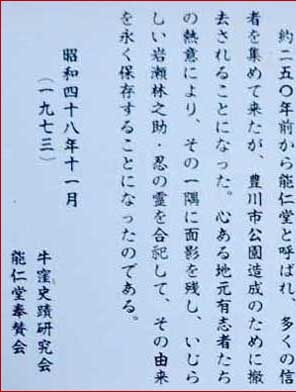 約二五〇年前から能仁堂と呼ばれ、多くの信
者を集めて来たが、豊川市公園造成のために撤
去されることになった。心ある地元有志者たち
の熱意により、その一隅に面影を残し、いじら
しい岩瀬林之助・忍の霊を合祀して、その由来
を永く保存することになったのである。
昭和四十八年十一月
(一九七三)
牛窪史蹟研究会
能仁堂奉賛会